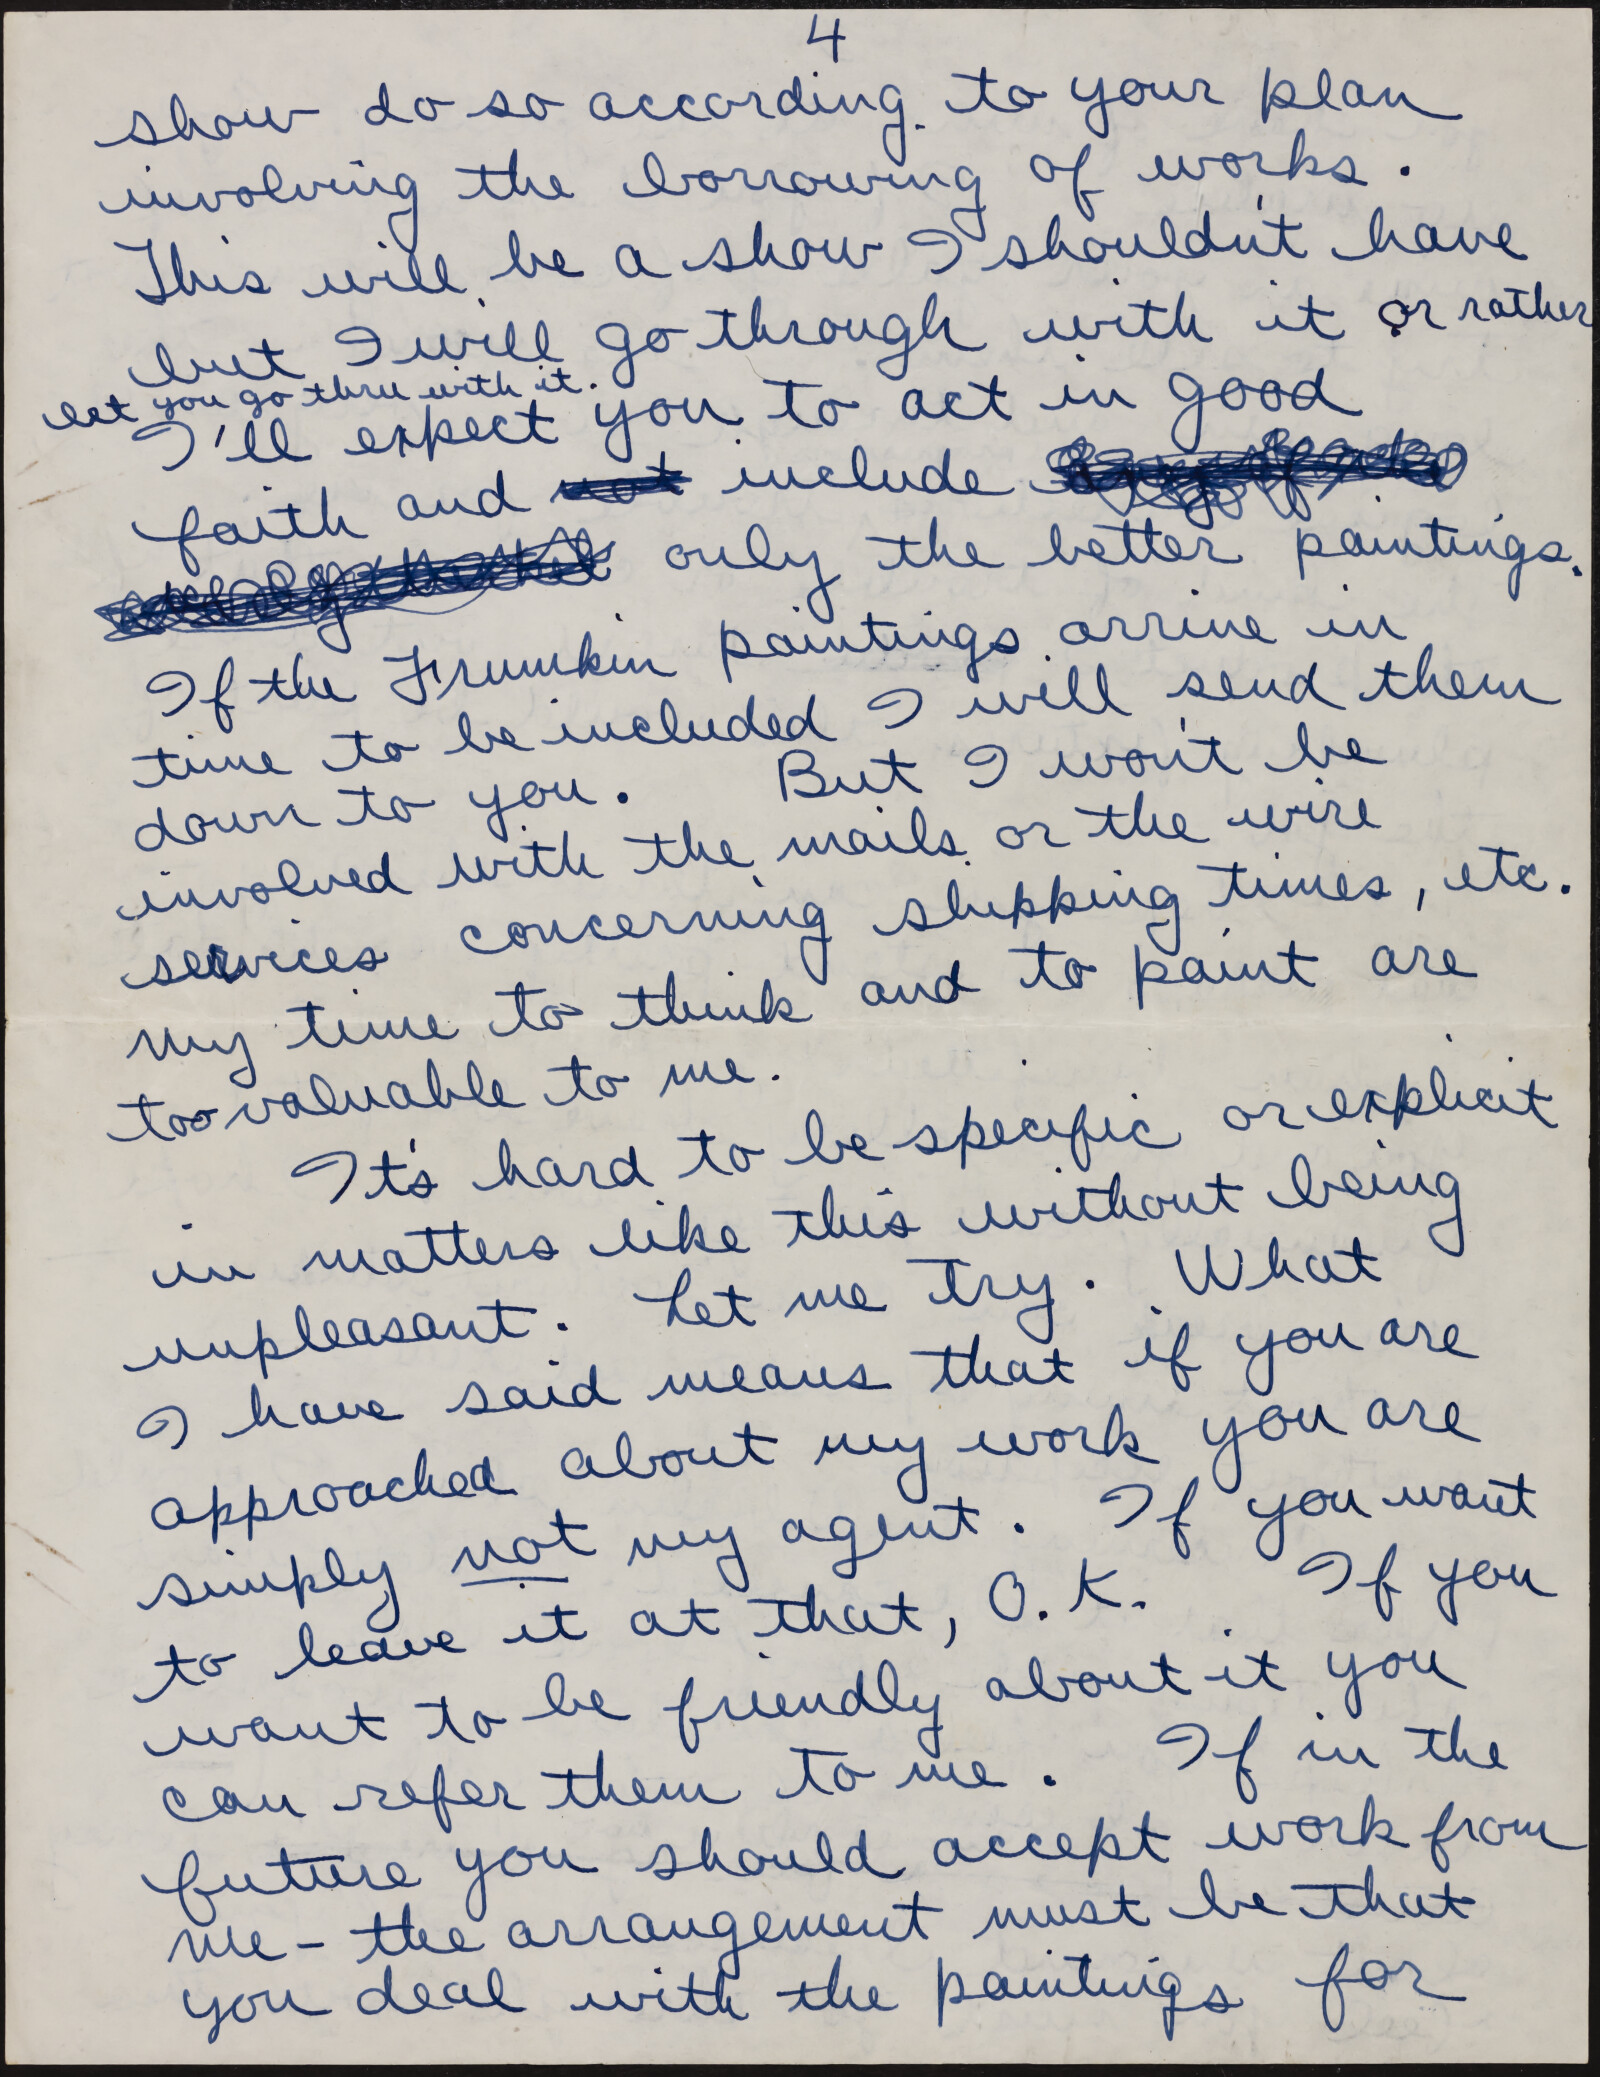 4
show do so according to your plan
involving the borrowing of works.
This will be a show I shouldn't have
but I will go through with it or rather
let you go thru with it.
I'll expect you to act in good
faith and not include
only the better paintings.
If the Frumkin paintings arrive in
time to be included I will send them
down to you. But I won't be
involved with the mails or the wire
services concerning shipping times, etc.
My time to think and to paint are
too valuable to me.
It's hard to be specific or explicit
in matters like this without being
unpleasant. Let me try. What
I have said means that if you are
approached about my work you are
simply not my agent. If you want
to leave it at that, O.K. If you
want to be friendly about it you
can refer them to me. If in the
future you should accept work from
me - the arrangement must be that
you deal with the paintings for